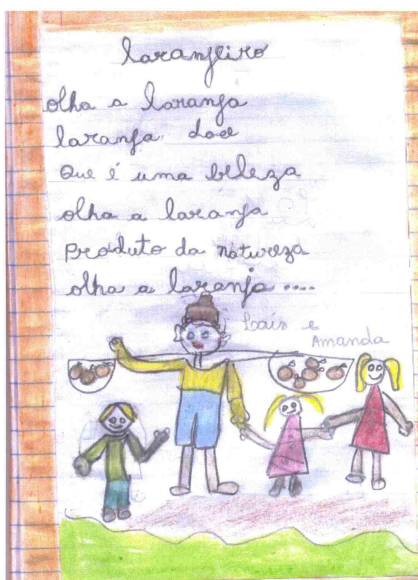 laranjeiro
olha a laranja
laranja doce
Que é uma beleza
olha a laranja
produto da natureza
olha a laranja ....
Laís e
Amanda